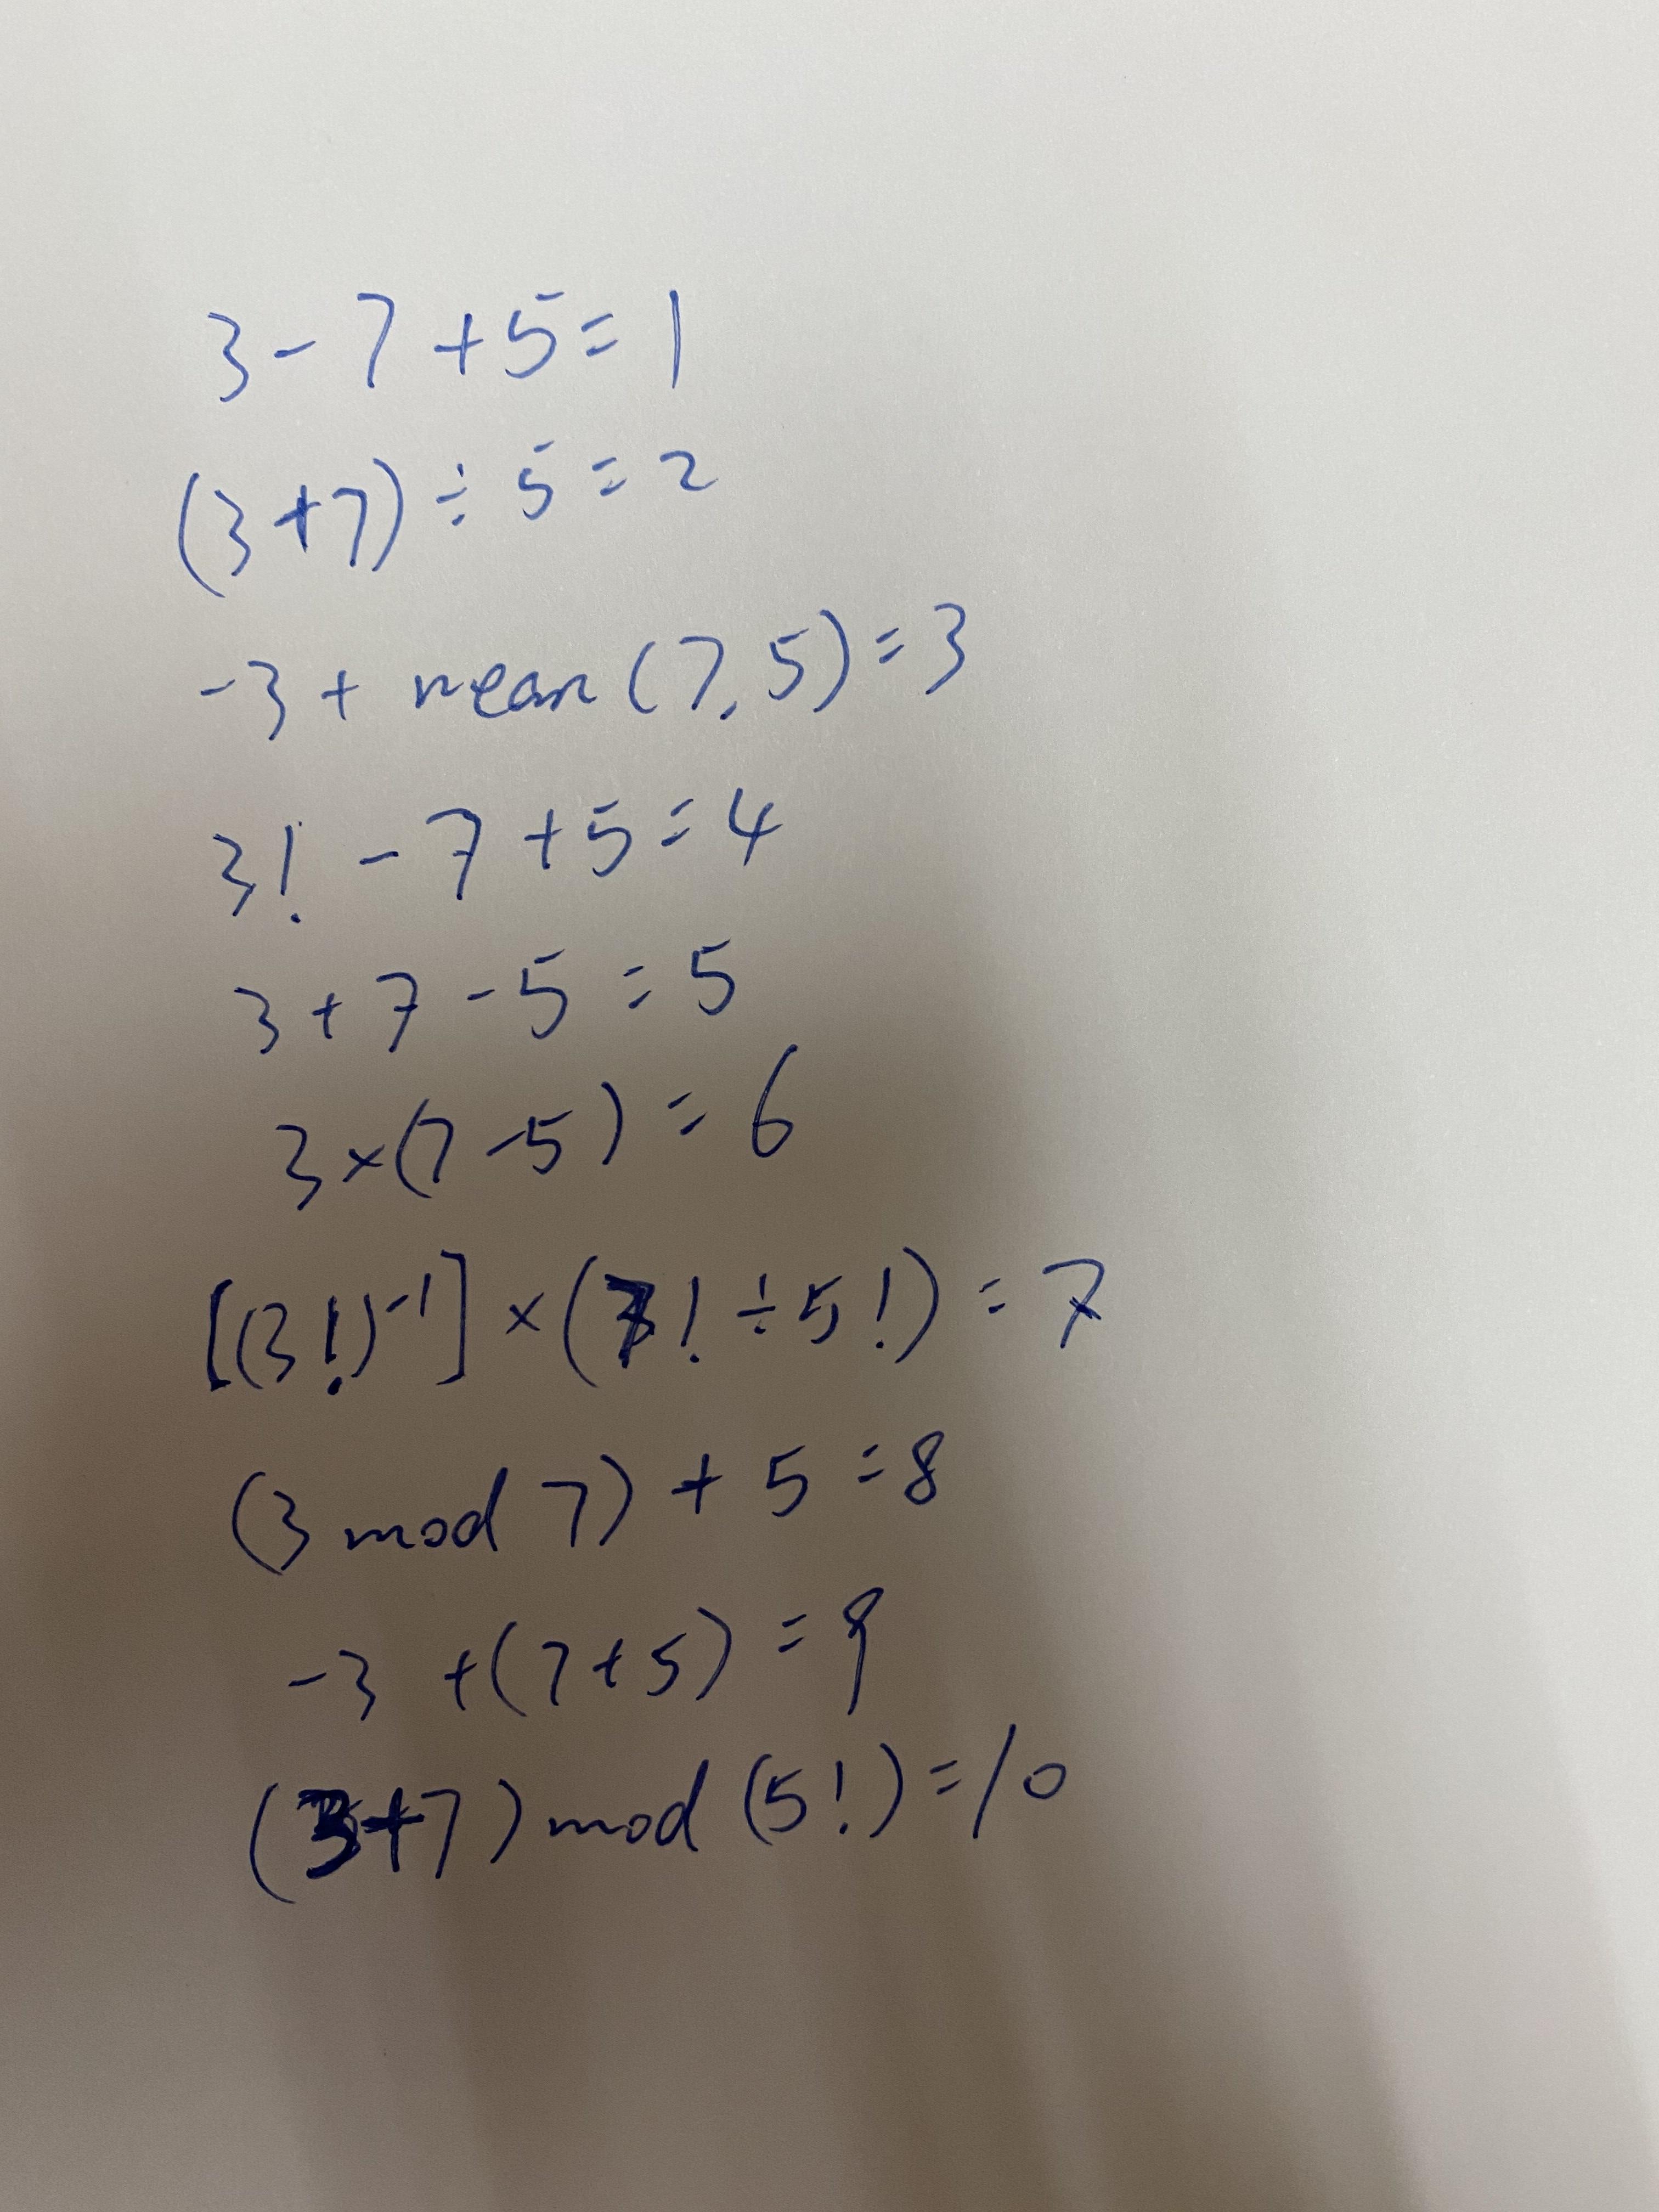 3-7+5=1
(3+7)÷5=2
-3+mean(7,5)=3
3!-7+5=4
3+7-5=5
3×(7-5)=6
[(3!)⁻¹]×(7!÷5!)=7
(3 mod 7)+5=8
-3+(7+5)=9
(3+7)mod(5!)=10